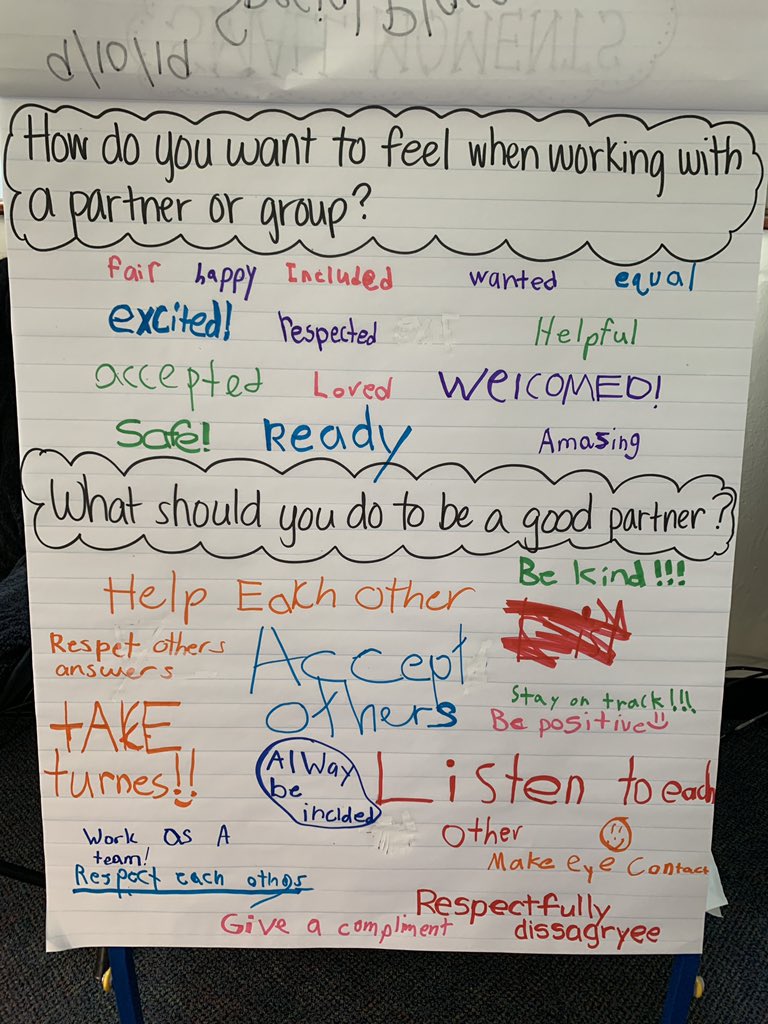 How do you want to feel when working with
a partner or group?
fair happy Included wanted equal
excited! respected Helpful
accepted Loved WelCOMED!
Safe! Ready Amasing
What should you do to be a good partner?
Be kind!!!
Help Each other
Respet others
answers
Accept
others
Stay on track!!!
Be positive
tAKE
turnes!!
AlWay
be
inclded
Listen to each
other
Work as A
team!
Make eye contact
Respect each othos
Respectfully
dissagryee
Give a compliment